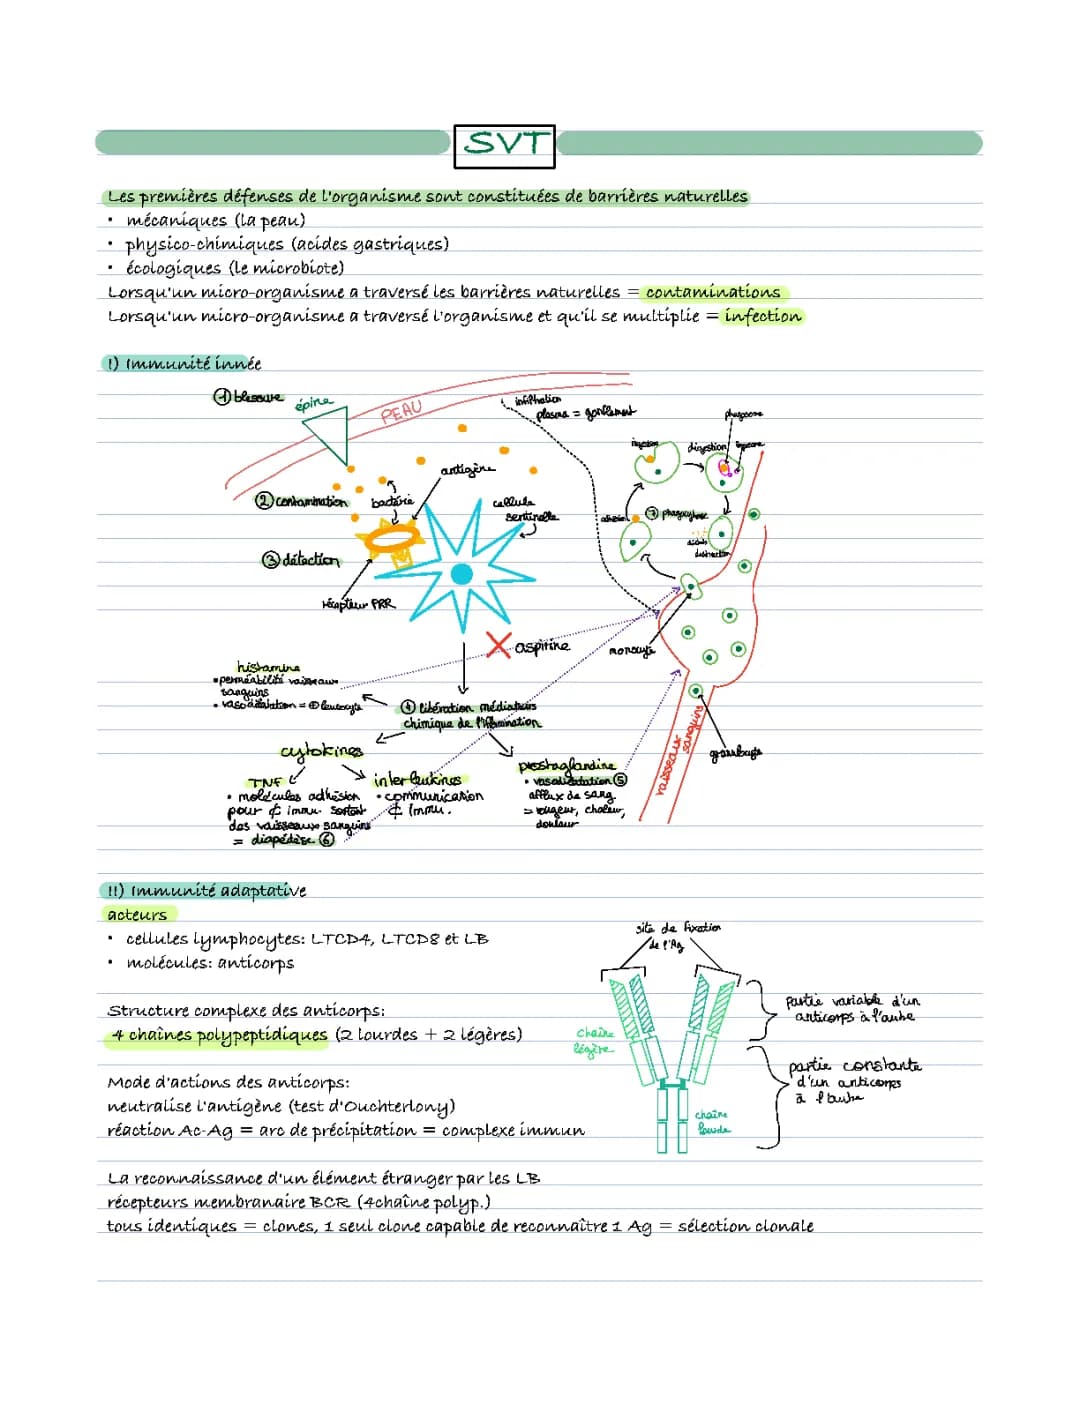 SVT
Les premières défenses de l'organisme sont constituées de barrières naturelles
• mécaniques (la peau)
• physico-chimiques (acides gastriques)
• écologiques (le microbiote)
Lorsqu'un micro-organisme a traversé les barrières naturelles = contaminations
Lorsqu'un micro-organisme a traversé l'organisme et qu'il se multiplie = infection
I) Immunité innée
① blessure
épine
PEAU
infiltration
plasma = gonflement
phagosome
ingestion
digestion
lysosome
antigène
② contamination
bactérie
cellule
sentinelle
adhésion
⑦ phagocytose
déchets
destruction
③ détection
récepteur PRR
aspirine
monocyte
histamine
• perméabilité vaisseaux
sanguins
• vasodilatation = ⊕ leucocyte
④ libération médiateurs
chimique de l'inflammation
cytokines
prostaglandine
• vasodilatation ⑤
afflux de sang
= rougeur, chaleur,
douleur
TNF
• molécules adhésion
pour ₵ immu. sortent
des vaisseaux sanguins
= diapédèse ⑥
interleukines
• communication
₵ immu.
vaisseaux
sanguins
granulocyte
II) Immunité adaptative
acteurs
• cellules lymphocytes: LTCD4, LTCD8 et LB
• molécules: anticorps
site de fixation
de l'Ag
Structure complexe des anticorps:
4 chaînes polypeptidiques (2 lourdes + 2 légères)
chaîne
légère
partie variable d'un
anticorps à l'autre
partie constante
d'un anticorps
à l'autre
chaîne
lourde
Mode d'actions des anticorps:
neutralise l'antigène (test d'Ouchterlony)
réaction Ac-Ag = arc de précipitation = complexe immun
La reconnaissance d'un élément étranger par les LB
récepteurs membranaire BCR (4chaîne polyp.)
tous identiques = clones, 1 seul clone capable de reconnaître 1 Ag = sélection clonale